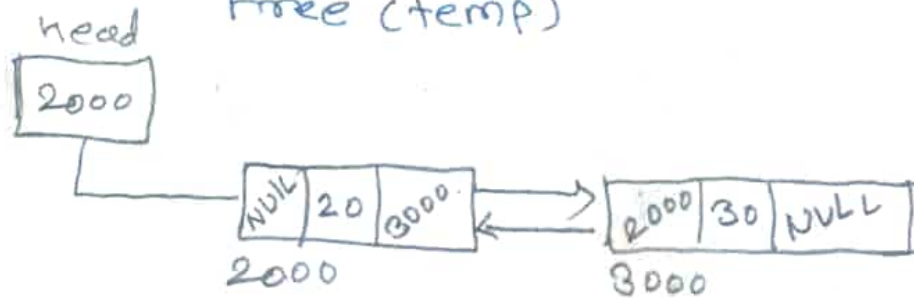 Free (temp)
head
2000
NULL 20 3000 2000 30 NULL
2000 3000